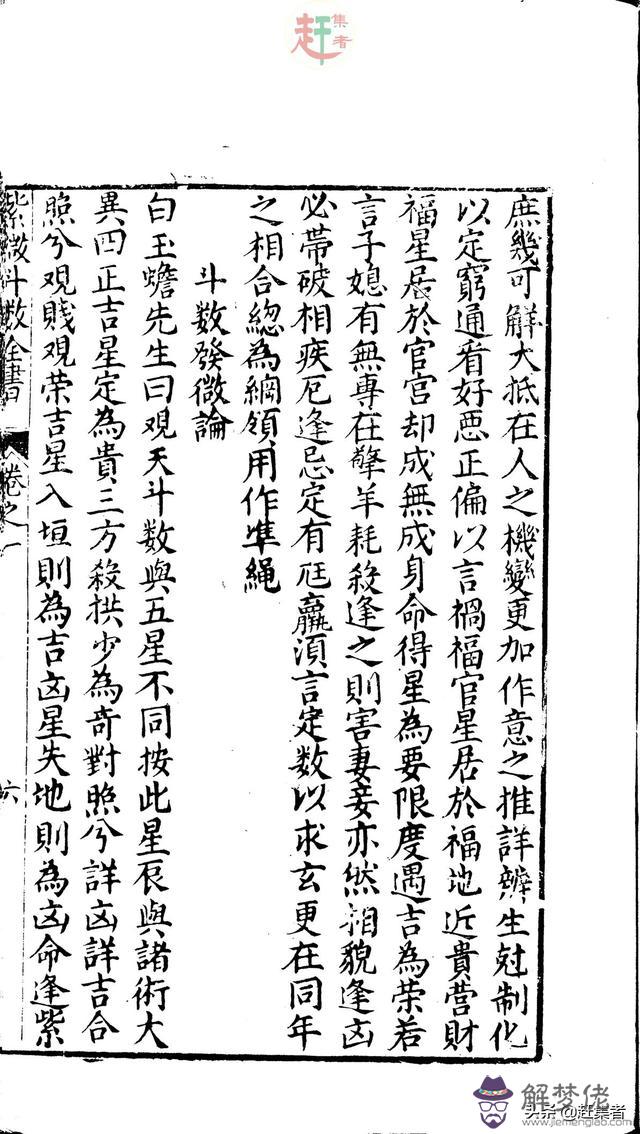 赶集者
庶幾可觧大抵在人之機變更加作意之推詳辨生尅制化
以定窮通看好惡正偏以言禍福官星居於福地近貴营財
福星居於官宫却成無成身命得星為要限度遇吉為荣若
言子媳有無專在擎羊耗殺逢之則害妻妾亦然相貌逢凶
必帶破相疾厄逢忌定有尫羸湏言定数以求玄更在同年
之相合緫為綱領用作凖繩
斗数發微論
白玉蟾先生曰观天斗数與五星不同按此星辰與諸術大
異四正吉星定為貴三方殺拱少為奇對照兮詳凶詳吉合
照兮观賤观荣吉星入垣則為吉凶星失地則為凶命逢紫
紫微斗数全書 卷之一 六
解梦佬
www.jiemenglao.com
头条@赶集者